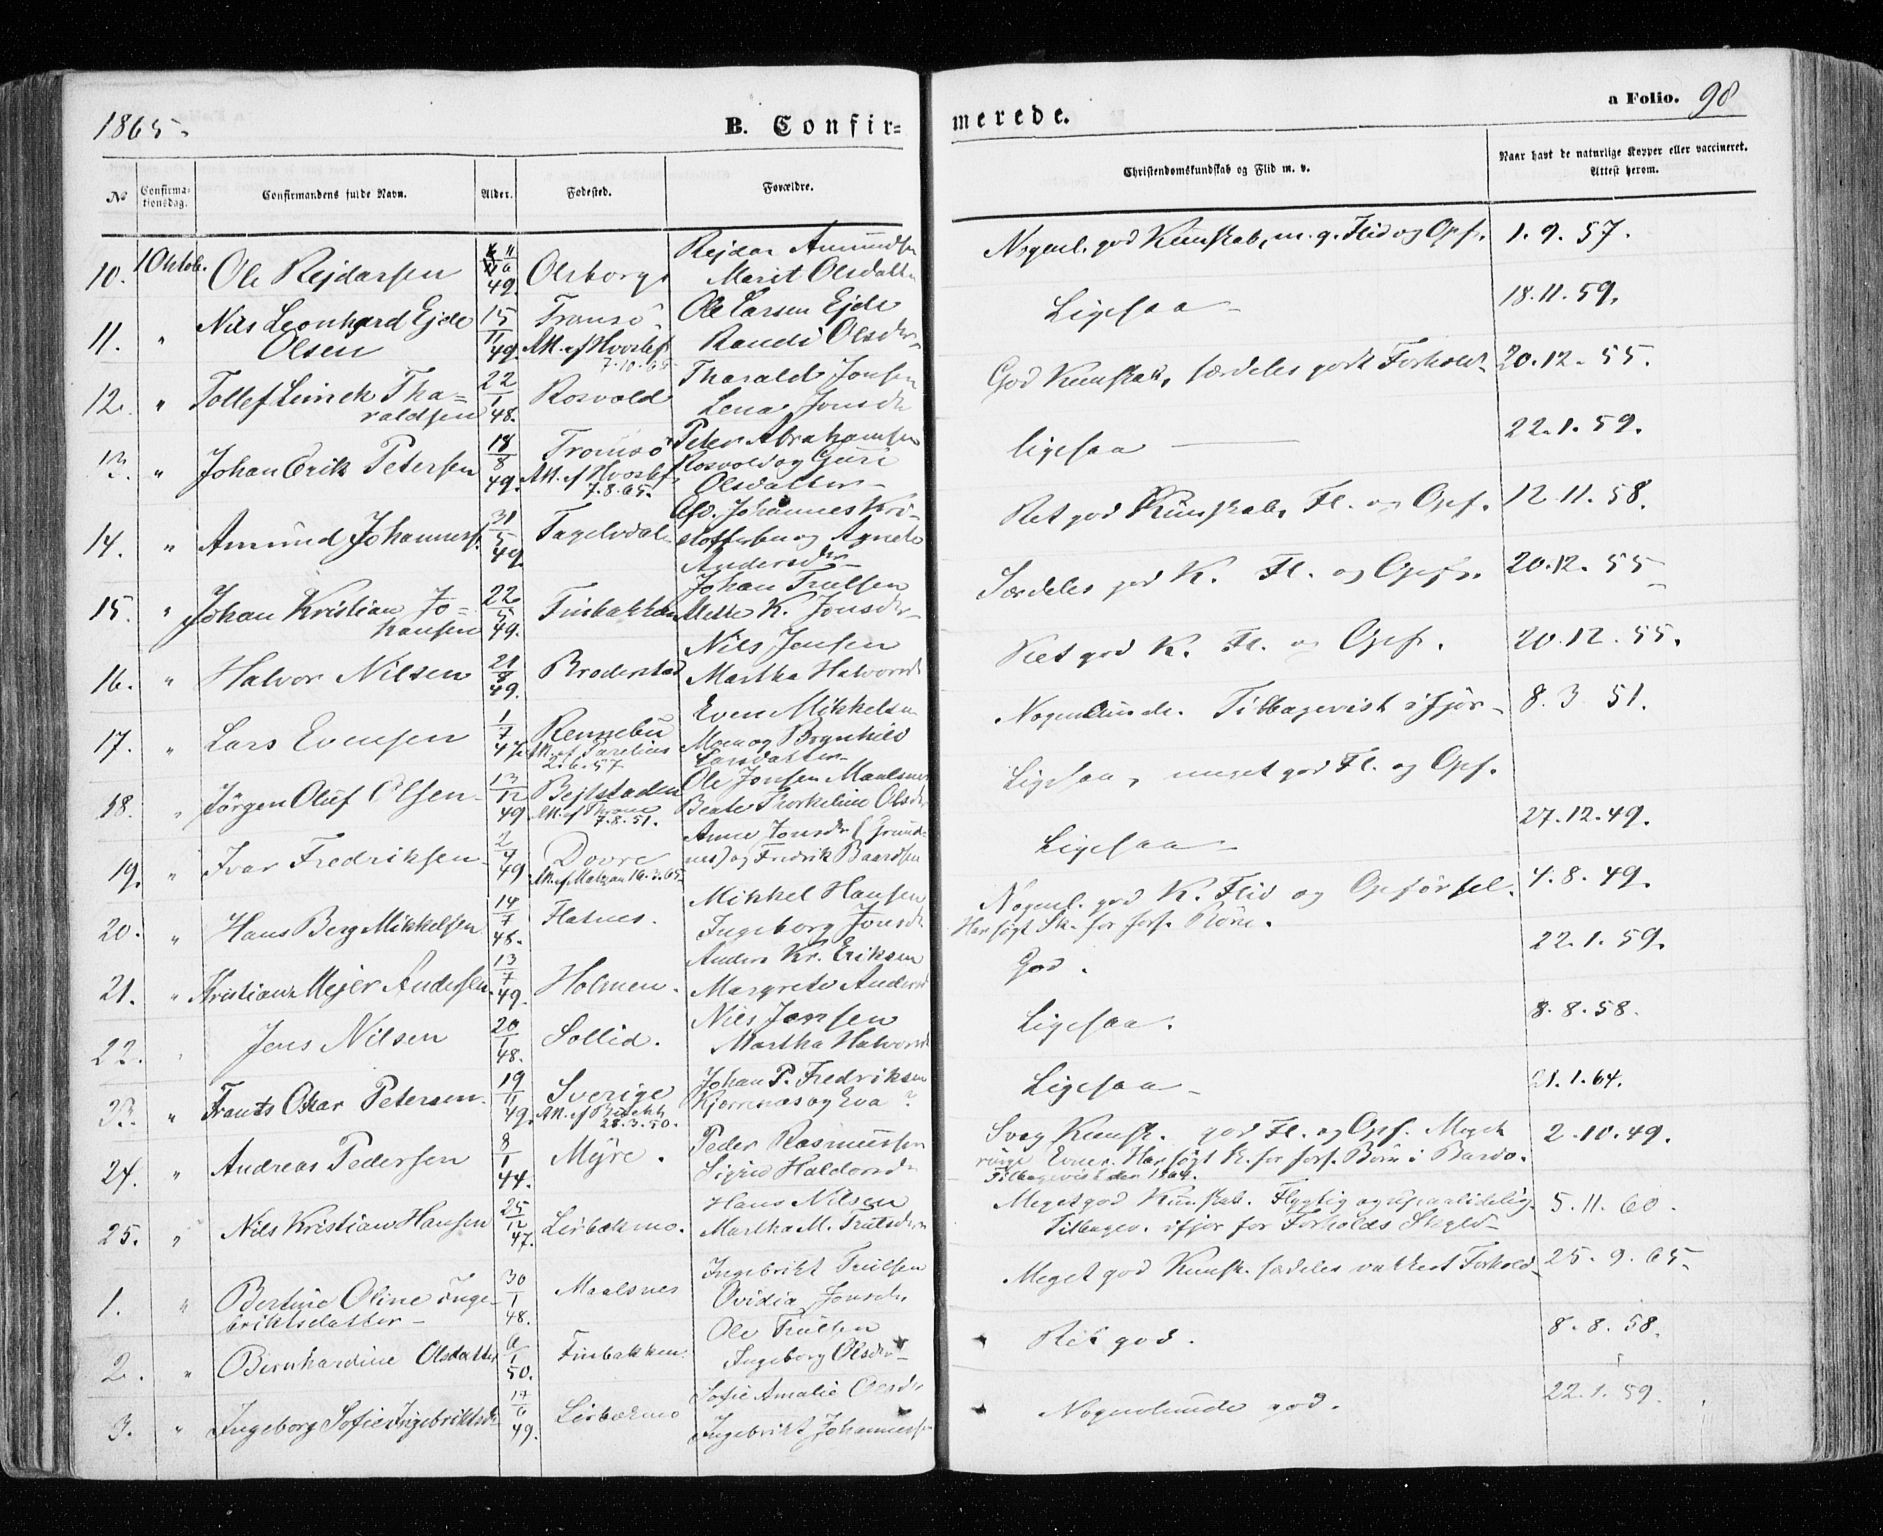 1865.
B. Confir=
merede.
a Folio. 98
No
Confirma-
tionsdag.
Confirmandens fulde Navn.
Alder.
Fødested.
Forældre.
Christendomskundskab og Flid m. v.
Naar havt de naturlige Kopper eller vaccineret.
Attest herom.
10. 1 Oktob. Ole Rejdarsen 49. Olsborg Rejdar Amundsen
Marit Olsdatter
Nogenl. god Kunskab, m. g. Flid og Opf. 1. 9. 57.
11. " Nils Leonhard Ejde
Olsen 15/11 49. Tromsø
Att. af Hvoslef
7.10.65
Ole Larsen Ejde
Randi Olsdtr
Ligesaa 18.11.59.
12. " Tollef Linck Tha=
raldsen 22/1 48. Rosvold Tharald Jonsen
Lena Jonsdr
God Kunskab, særdeles godt Forhold 20.12.55.
13. " Johan Erik Petersen 18/8 49. Tromsø
Att. af Hvoslef
7.8.65.
Peter Abrahamsen
Rosvold og Guri
Olsdatter
ligesaa 22.1.59.
14. " Amund Johannesf. 31/5 49. Tagelvdal Johannes Kri-
stoffersen og Agnete
Andersdr
Ret god Kunskab, Fl. og Opf. 12.11.58.
15. " Johan Kristian Jo-
hansen 22/5 49. Finbakken Johan Trulsen
Mette K. Jonsdr
Særdeles god K. Fl. og Opf. 20.12.55
16. " Halvor Nilsen 21/8 49. Broderstad Nils Jensen
Martha Halvorsd
Ret god K. Fl. og Opf. 20.12.55.
17. " Lars Evensen 1/7 47. Rennebu
Att. af Parelius
2.6.57
Even Mikkelsen
Moen og Brynhild
Larsdatter
Nogenlunde. Tilbagevist ifjor 8.3.51.
18. " Jørgen Oluf Olsen 13/12 49. Bejtstaden
Att. af Thrane
7.8.51.
Ole Jonsen Maalsnes
Beate Thorkeline Olsdr
Ligesaa, meget god Fl. og Opf.
27.12.49.
19. " Ivar Fredriksen 2/7 49. Dovre
Anne Jonsdr (Grund-
nes) og Fredrik Baardsen
Ligesaa
20. " Hans Berg Mikkelsen 14/7 48. Flatnes. Mikkel Hansen
Ingeborg Jonsdr
Nogenl. god K. Flid og Opførsel. 4.8.49.
Har søgt Sk. for fors. Børn.
21. " Kristian Mejer Andersen. 13/7 49. Holmen. Anders Kr. Eriksen
Margrete Andersd
God. 22.1.59.
22. " Jens Nilsen 20/1 48. Sollid. Nils Jensen
Martha Halvorsd
Ligesaa. 8.8.58.
23. " Frants Oskar Petersen. 19/11 49. Sverige
28.3.50.
Johan P. Fredriksen
Kjerrenæs og Eva ?
Ligesaa 21.1.64.
24. " Andreas Pedersen 8/1 44. Myre. Peder Rasmussen
Sigrid Haldorsdr
Svag Kunsk. god Fl. og Opf. Meget 2.10.49.
ringe Evner. Har søgt Sk. for fors. Børn i Bardo.
Tilbagevist der 1864.
25. " Nils Kristian Hansen 25/12 47. Leirbækmo. Hans Nilsen
Martha M. Trulsdr
Meget god Kunskab. Flygtig og upaalidelig. 5.11.60.
Tilbagev. ifjor for Forholds Skyld
1. " Bertine Oline Inge-
briktsdatter 30/1 48. Maalsnes Ingebrikt Trulsen
Ovidia Jonsdr
Meget god Kunsk. særdeles vakkert Forhold 25.9.65
2. " Bernhardine Olsdatter 6/1 50. Finbakken. Ole Trulsen
Ingeborg Olsdr
Ret god. 8.8.58.
3. " Ingeborg Sofie Ingebriktsdr 17/6 49. Leirbækmo Sofie Amalie Olsdr
Ingebrikt Johannessen
Nogenlunde god. 22.1.59.